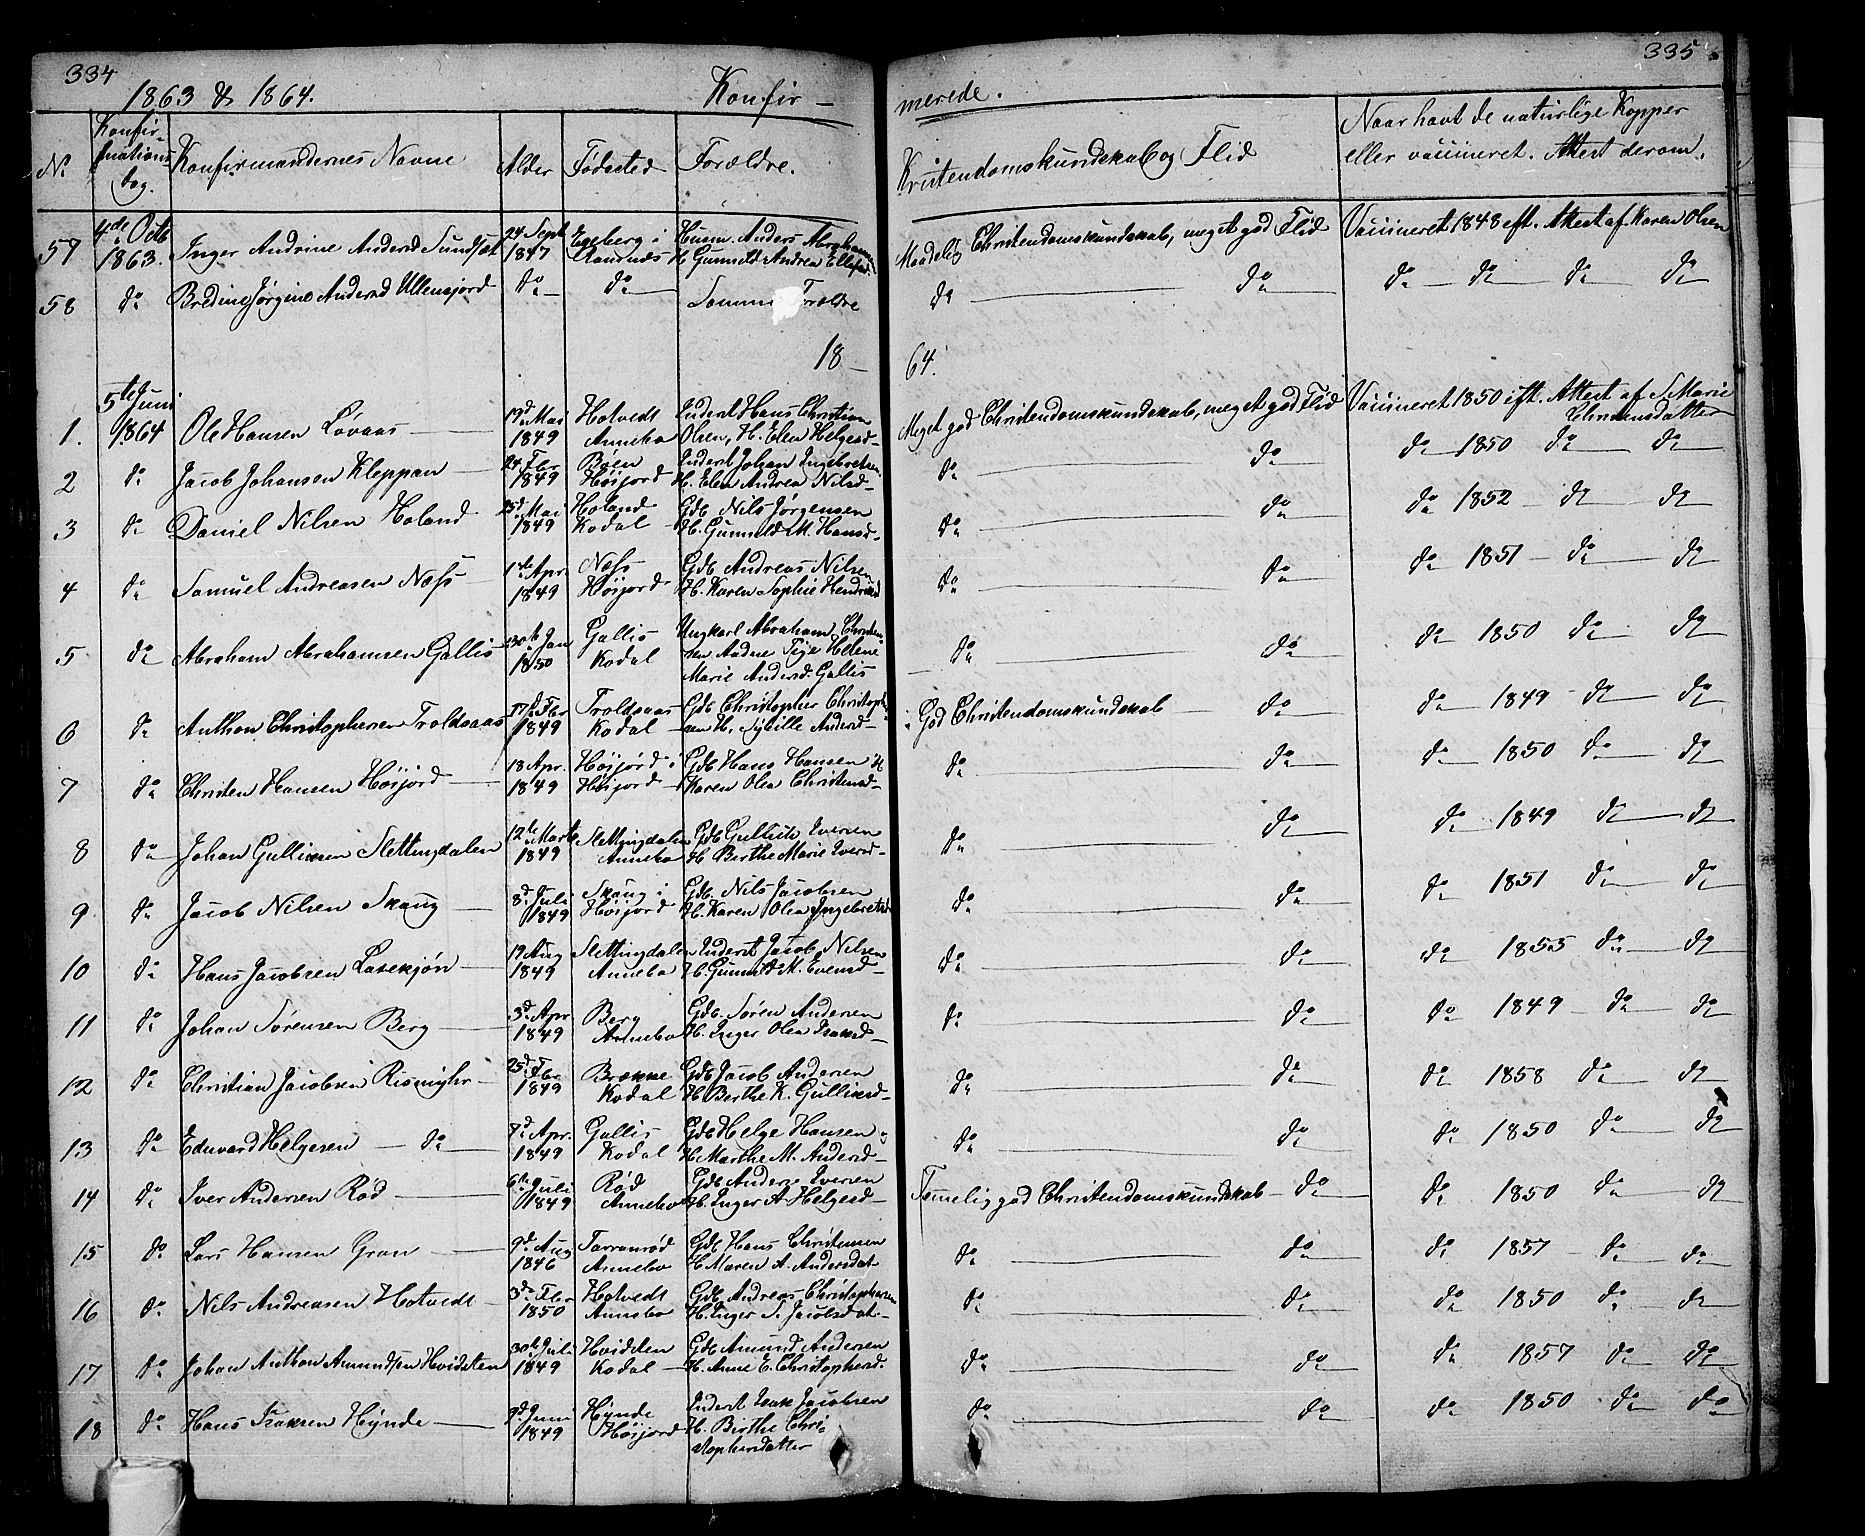 334
1863 & 1864. Konfir-
No Konfir-mations dag. Konfirmandernes Navne Alder Fødested Forældre.
57 4de Octb 1863. Inger Andrine Andersd Sundset 24 Sept 1847 Egeberg i Husm. Anders Abraham
H Gunnild Andrea Ellefsd.
58 do Bredine Jørgine Andersd Ullensjord do do Samme Forældre
18-
1. 5te Juni 1864 Ole Hansen Løvaas 19d Mai 1849 Hotvedt Annebo Inderst Hans Christian
Olsen, H. Elen Helgesd-
2 do Jacob Johansen Kleppan 24 Fbr 1849 Bøen Høijord Inderst Johan Ingebretsen
H. Elen Andrea Nilsd-
3 do Daniel Nilsen Holand 25d Mai 1849 Holand Kodal Gdb Nils Jørgensen
H. Gunnild M. Hansd-
4 do Samuel Andreasen Næss 1ste Apr. 1849 Næss Høijord Gdb Andreas Nilsen
H. Karen Sophie Hendriksd
5 do Abraham Abrahamsen Gallis 30te Jan 1850 Gallis Kodal Ungkarl Abraham Christen-
sen Pige Helene
Marie Andersd. Gallis
6 do Anthon Christophersen Troldsaas 17de Fbr 1849 Troldsaas Kodal Gdb Christopher Christoph-
sen H. Sybille Andersd-
7 do Christen Hansen Høijord 18 Apr. 1849 Høijord i Høijord Gdb Hans Hansen H
Karen Olea Christensd-
8 do Johan Gulliksen Slettingdalen 12te Marts 1849 Slettingdalen Annebo Gdb Gullik Iversen
H Berthe Marie Iversd-
9 do Jacob Nilsen Skaug 8d Juli 1849 Skaug i Høijord Gdb. Nils Jacobsen
H. Karen Olea Ingebretsd
10 do Hans Jacobsen Laxekjøn 19 Aug 1849 Slettingdalen Annebo Inderst Jacob Nilsen
H. Gunnild M. Evensd-
11 do Johan Sørensen Berg 3d Apr 1849 Berg Annebo Gdb. Søren Andersen
H. Inger Olea Isaksd-
12 do Christian Jacobsen 25d Fbr 1849 Brække Kodal Gdb Jacob Andersen
H Berthe K. Gulliksd-
13 do Edevard Helgesen - do 7d Apr. 1849 Gallis Kodal Gdb Helge Hansen
H Marthe M. Andersd-
14 do Iver Andersen Rød 6te Juli 1849 Rød Annebo Gdb Anders Iversen
H. Inger A. Helgesd-
15 do Lars Hansen Gran 9d Aug 1846 Tarranrød Annebo Gdb Hans Christensen
H Maren A. Andersdat-
16 do Nils Andreasen Hotvedt 3de Fbr 1850 Hotvedt Annebo Gdb Andreas Christophersen
H. Inger S. Jacobsdat-
17 do Johan Anthon Amundsen Hvidsten 30te Juli 1849 Hvidsten Kodal Gdb Amund Andersen
H. Anne E. Christophersd.
18 do Hans Isaksen Hynde 9d Juni 1849 Hynde Høijord Inderst Isak Jacobsen
H. Birthe Chri-
stophersdatter
335
merede.
Kristendomskundskab og Flid Naar havt de naturlige Kopper
eller vaccineret. Attest derom.
Maadelig Christendomskundskab, meget god Flid Vaccineret 1848 eft. Attest af Karen Olsen
do do do do do do
64.
Meget god Christendomskundskab, meget god Flid Vaccineret 1850 eft. Attest af S. Marie
Christensdatter
do do do 1850 do do
do do do 1852 do do
do do do 1851 do do
do do do 1850 do do
God Christendomskundskab do do 1849 do do
do do do 1850 do do
do do do 1849 do do
do do do 1851 do do
do do do 1855 do do
do do do 1849 do do
do do do 1858 do do
do do do 1850 do do
Temmelig god Christendomskundskab do do 1850 do do
do do do 1857 do do
do do do 1850 do do
do do do 1857 do do
do do do 1850 do do